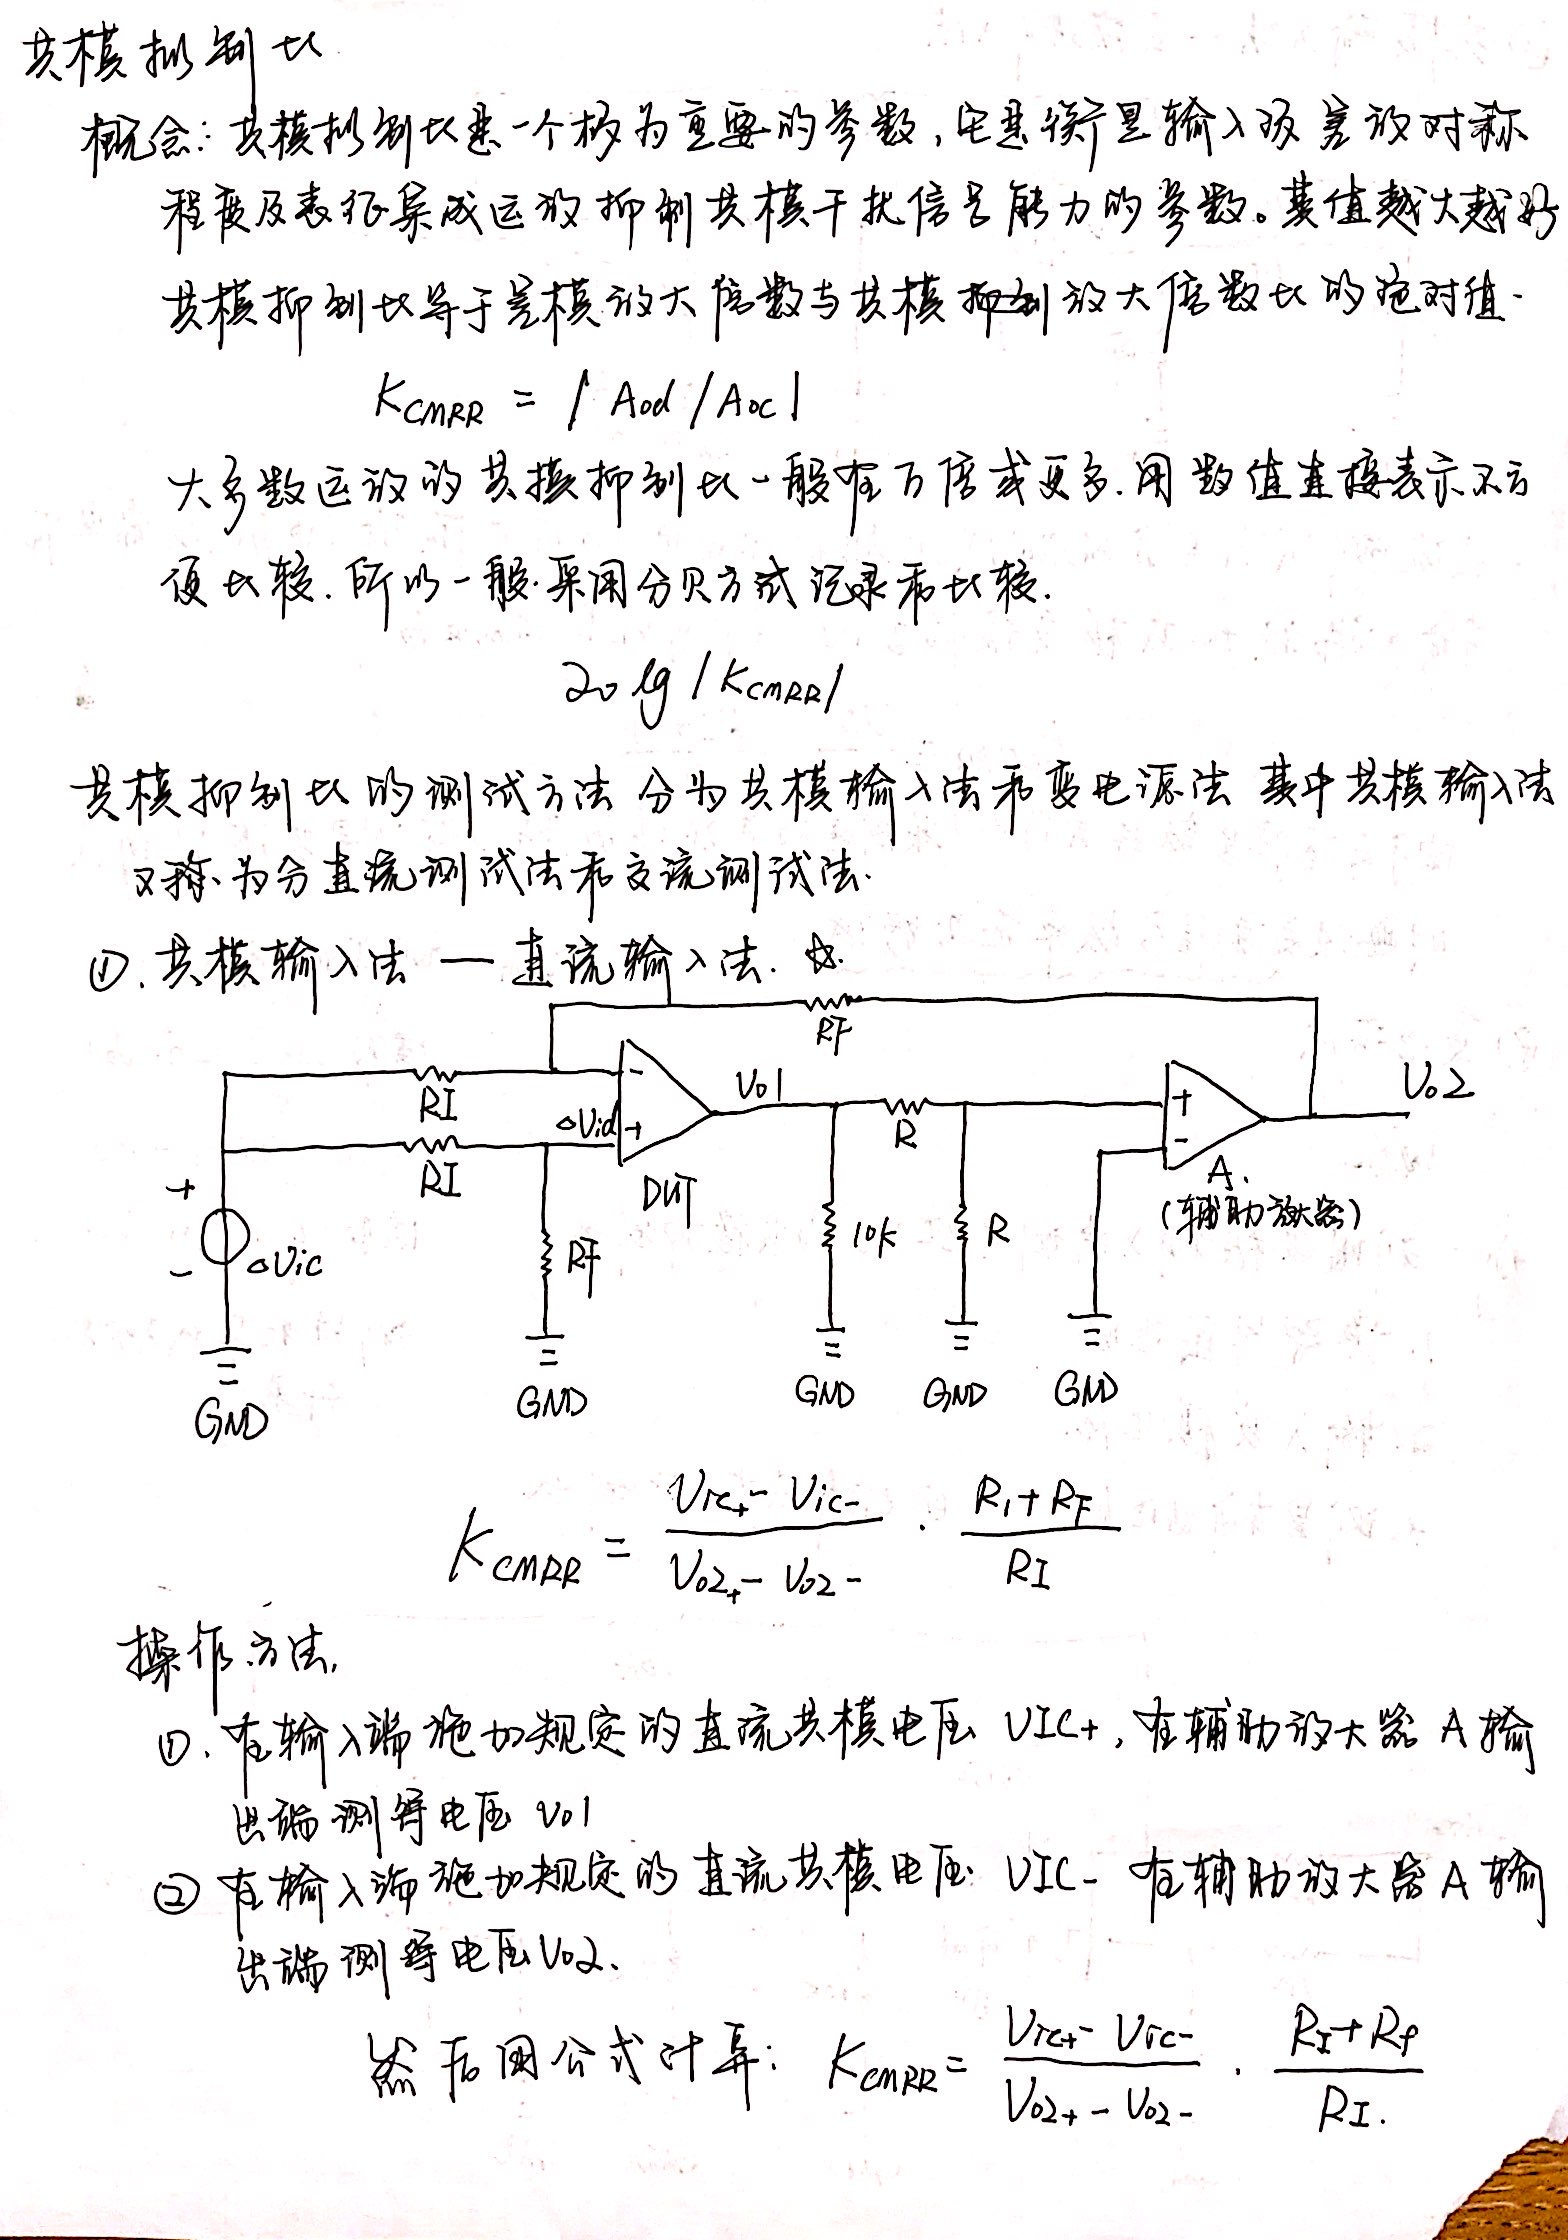 共模抑制比
概念:共模抑制比是一个极为重要的参数,它是衡量输入级差放对称
程度及表征集成运放抑制共模干扰信号能力的参数。其值越大越好
共模抑制比等于差模放大倍数与共模抑制放大倍数比的绝对值.
KCMRR = |Aod/Aoc|
大多数运放的共模抑制比一般在万倍或更多.用数值直接表示不方
便比较.所以一般采用分贝方式记录和比较.
20lg|KCMRR|
共模抑制比的测试方法 分为共模输入法和变电源法 其中共模输入法
又称为分直流测试法和交流测试法.
①.共模输入法 — 直流输入法. ☆.
RF
RI
-
Vo1
Vo2
△Vid
+
R
+
-
RI
DUT
A.
(辅助放大器)
+
-
△Vic
RF
10k
R
GND
GND
GND
GND
GND
KCMRR = Vic+ - Vic- / Vo2+ - Vo2- · R1+RF / RI
操作方法,
①.在输入端施加规定的直流共模电压 VIC+,在辅助放大器 A输
出端测得电压 Vo1
② 在输入端施加规定的直流共模电压 VIC- 在辅助放大器A输
出端测得电压Vo2.
然后用公式计算: KCMRR= Vic+ - Vic- / Vo2+ - Vo2- · RI+RF / RI.